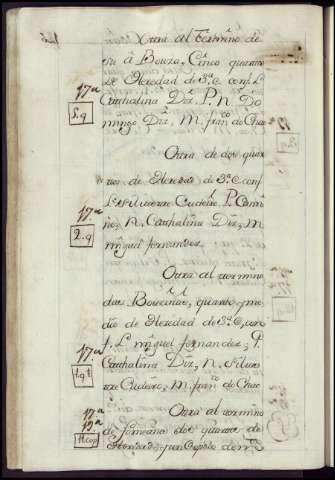 Otra al termino de
su á Bouza, Cinco quartos
de Heredad de 3ª C. conf. L.
Cathalina Diz, P. N. Do
mingo Diz, M. franco do Chao
17ª
5.q
Otra de dos quar
tos de Heredad de 3ª C. conf
L. Silvestre Cudeiro, P. Cami
no, N. Cathalina Diz, M
miguel fernandez
17ª
2.q
Otra al termino
das Boucinas, quarto y me
dio de Heredad de 3ª C. con
f. L. miguel fernandez, P.
Cathalina Diz, N. Silves
tre Cudeiro, M. franco do Chao
17ª
1q1
Otra al termino
de dos quartos de
Heredad
17ª
19ª
11cop